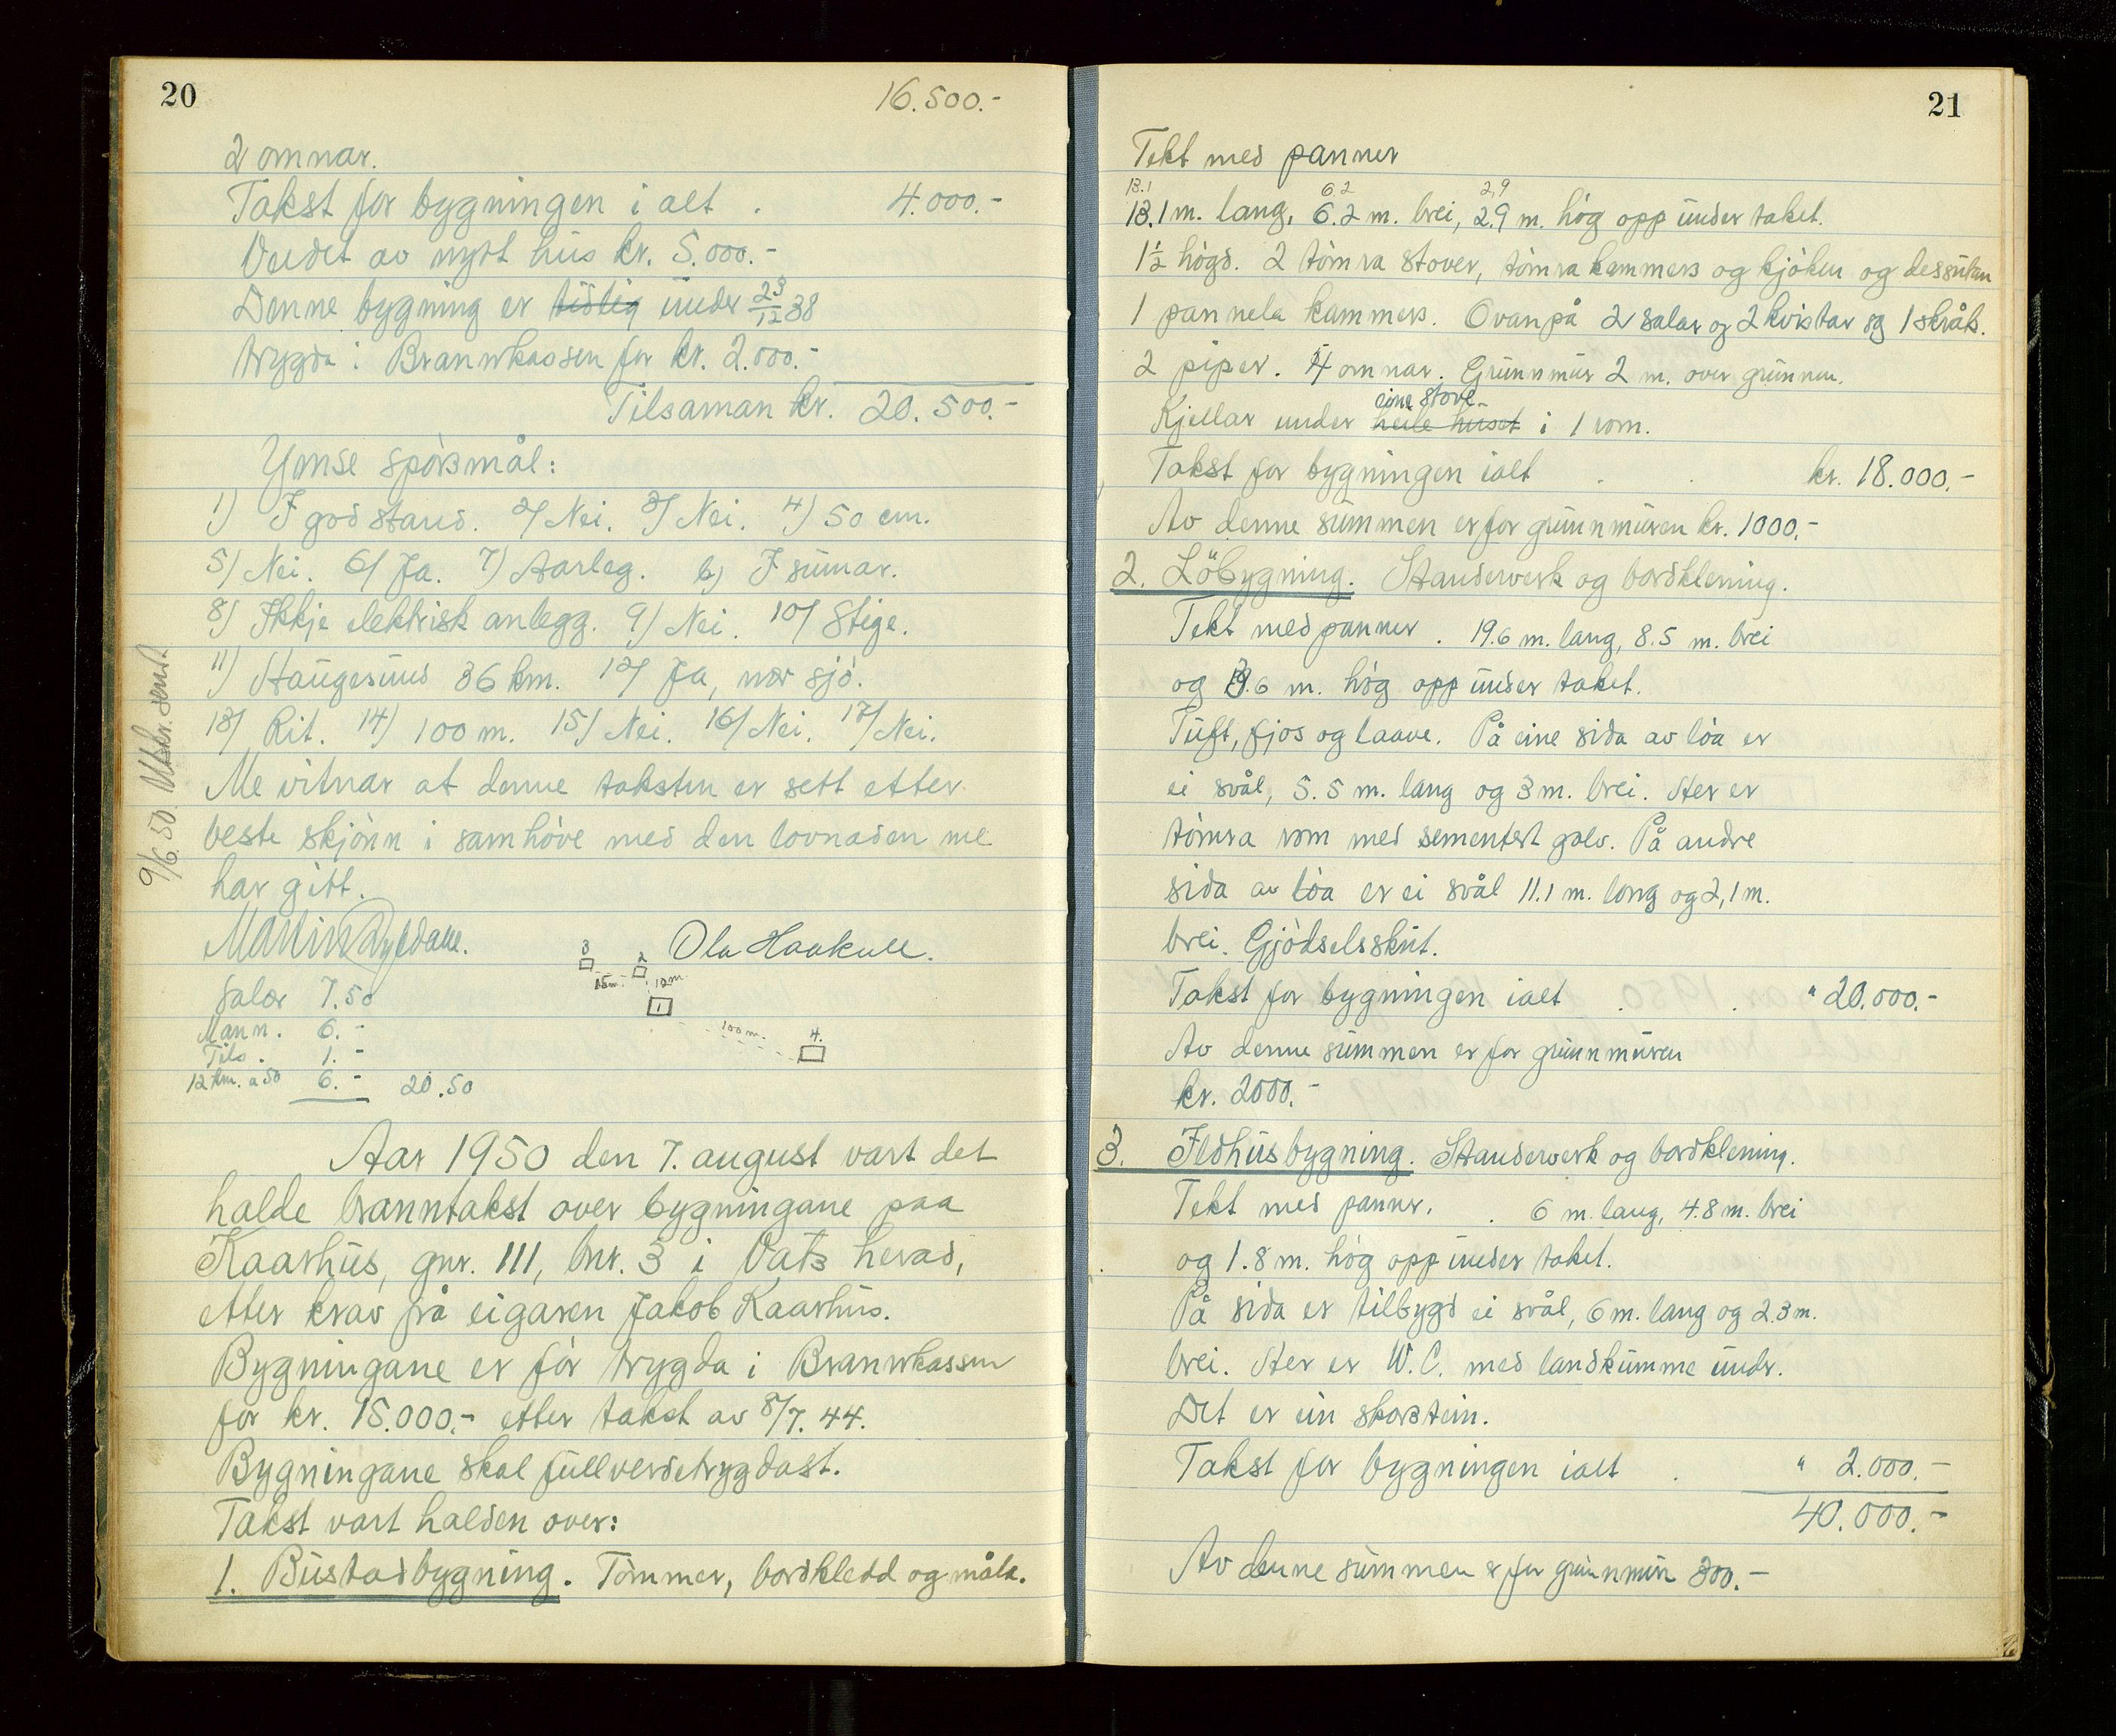 20
16.500.-
2 omnar.
Takst for bygningen i alt . 4.000.-
Verdet av nytt hus kr. 5.000.-
Denne bygning er tidlig under 23/12 38
trygda i Brannkassen for kr. 2.000.-
Tilsaman kr. 20.500.-
Ymse spörsmål:
1) I god stand. 2/ Nei. 3/ Nei. 4) 50 cm.
5) Nei. 6/ Ja. 7) Aarleg. b) I sumar.
8) Ikkje elektrisk anlegg. 9) Nei. 10/ Stige.
11) Haugesund 36 km. 12/ Ja, nær sjö.
13/ Rit. 14) 100 m. 15/ Nei. 16/ Nei. 17/ Nei.
Me vitnar at denne taksten er sett etter
beste skjönn i samhöve med den lovnaden me
har gitt.
9/6.50. Utskr. sendt
Ola Haakull.
3 2
15m. 12m
1
100 m. 4.
Salær 7.50
Mann. 6.-
Tils. 1.-
12 km. a 50 6.- 20.50
Aar 1950 den 7. august vart det
halde branntakst over bygningane paa
Kaarhus, gnr. 111, bnr. 3 i Vats herad,
etter krav på eigaren Jakob Kaarhus.
Bygningane er för trygda i Brannkassen
for kr. 15.000.- etter takst av 8/7. 44.
Bygningane skal fullverdetrygdast.
Takst vart halden over:
1. Bustadbygning. Tömmer, bordkledd og måla.
21
Tekt med panner
13.1 6.2 2,9
13.1 m. lang, 6.2 m. brei, 2.9 m. hög opp under taket.
1½ högd. 2 tömra stover, tömra kammers og kjöken og dessutan
1 pannela kammers. Ovanpå 2 salar og 2 kvistar og 1 skråk.
2 piper. 4 omnar. Grunnmur 2 m. over grunnen.
eine stove
Kjellar under heile huset i 1 rom.
Takst for bygningen ialt . . kr. 18.000.-
Av denne summen er for grunnmuren kr. 1000.-
2. Löbygning. Standerverk og bordklening.
Tekt med panner . 19.6 m. lang, 8.5 m. brei
og 3.6 m. hög opp under taket.
Tuft, fjos og laave. På eine sida av löa er
ei svål, 5.5 m. lang og 3 m. brei. Her er
tömra rom med sementert golv. På andre
sida av löa er ei svål 11.1 m. long og 2,1 m.
brei. Gjödselsskut.
Takst for bygningen ialt . . " 20.000.-
Av denne summen er for grunnmuren
kr. 2000.-
3. Ildhusbygning. Standerverk og bordklening.
Tekt med panner. . 6 m. lang, 4.8 m. brei
og 1.8 m. hög opp under taket.
På sida er tilbygd ei svål, 6 m. lang og 2.3 m.
brei. Her er W.C. med landkumme undr.
Det er ein skorstein.
Takst for bygningen ialt . " 2.000.-
40.000.-
Av denne summen er for grunnmur 300.-